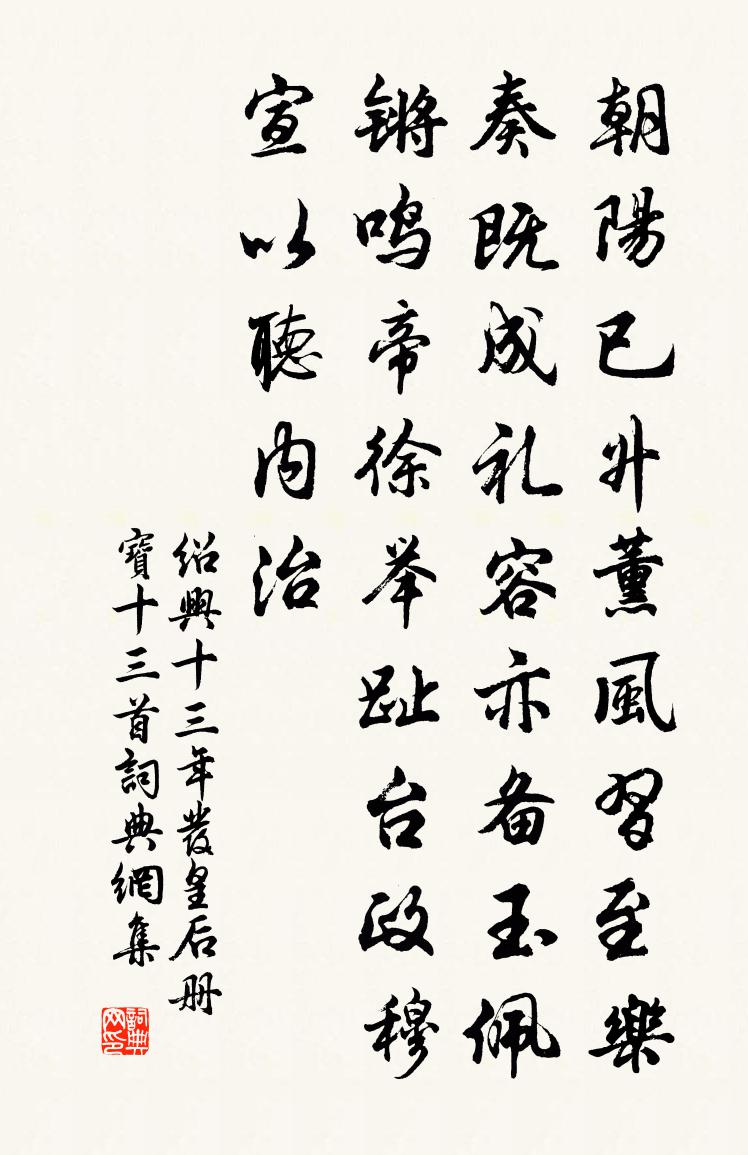 朝陽已升薰風習至樂
奏既成礼容亦备玉佩
锵鸣帝徐举趾台政穆
宣以聽内治
绍興十三年發皇后册
寶十三首詞典網集
詞典网印